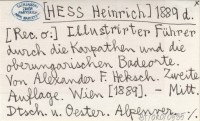 [HESS Heinrich] 1889 d.
[Rec. o:] Illustrirter Führer
durch die Karpathen und die
oberungarischen Badeorte.
Von Alexander F. Heksch. Zweite
Auflage. Wien [1889]. - Mitt.
Dtsch. u. Oester. Alpenver.